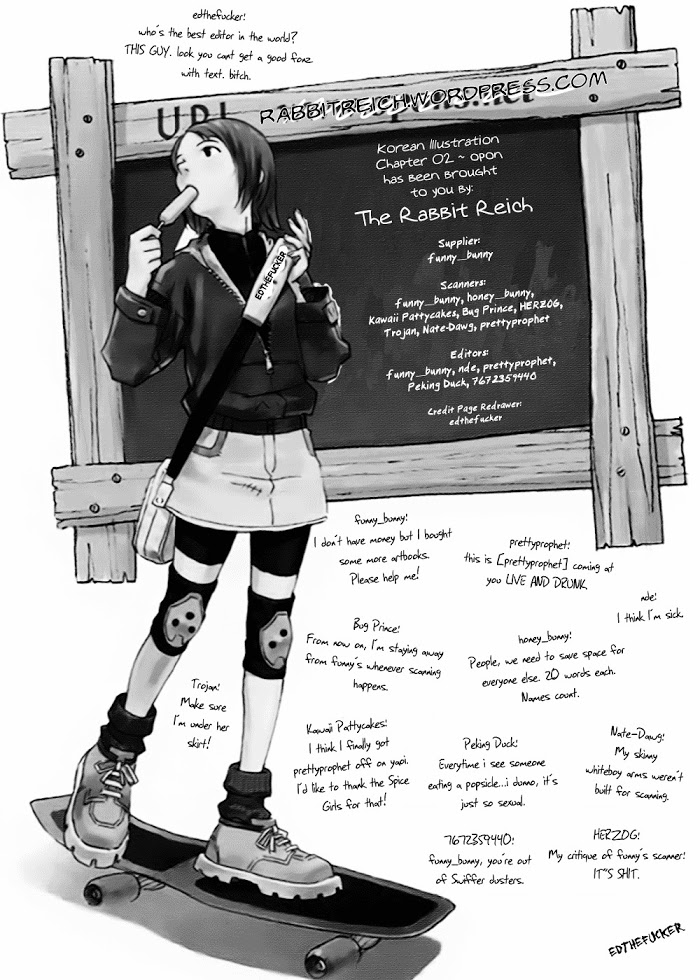 edthefucker!
who's the best editor in the world?
THIS GUY. look you cant get a good fonz
with text. bitch.
URL
RABBITREICH.WORDPRESS.COM
Korean Illustration
Chapter 02 ~ opon
has been brought
to you by:
The Rabbit Reich
Supplier:
funny_bunny
Scanners:
funny_bunny, honey_bunny,
Kawaii Pattycakes, Bug Prince, HERZOG,
Trojan, Nate-Dawg, prettyprophet
Editors:
funny_bunny, nde, prettyprophet,
Peking Duck, 7672359440
Credit Page Redrawer:
edthefucker
EDTHEFUCKER
funny_bunny!
I don't have money but I bought
some more artbooks.
Please help me!
prettyprophet:
this is [prettyprophet] coming at
you LIVE AND DRUNK
nde!
I think I'm sick.
Bug Prince!
From now on, I'm staying away
from funny's whenever scanning
happens.
honey_bunny!
People, we need to save space for
everyone else. 20 words each.
Names count.
Trojan!
Make sure
I'm under her
skirt!
Kawaii Pattycakes!
I think I finally got
prettyprophet off on yaoi.
I'd like to thank the Spice
Girls for that!
Peking Duck!
Everytime i see someone
eating a popsicle...i dunno, it's
just so sexual.
Nate-Dawg!
My skinny
whiteboy arms weren't
built for scanning.
7672359440:
funny_bunny, you're out
of Swiffer dusters.
HERZOG:
My critique of funny's scanner!
IT"S SHIT.
EDTHEFUCKER